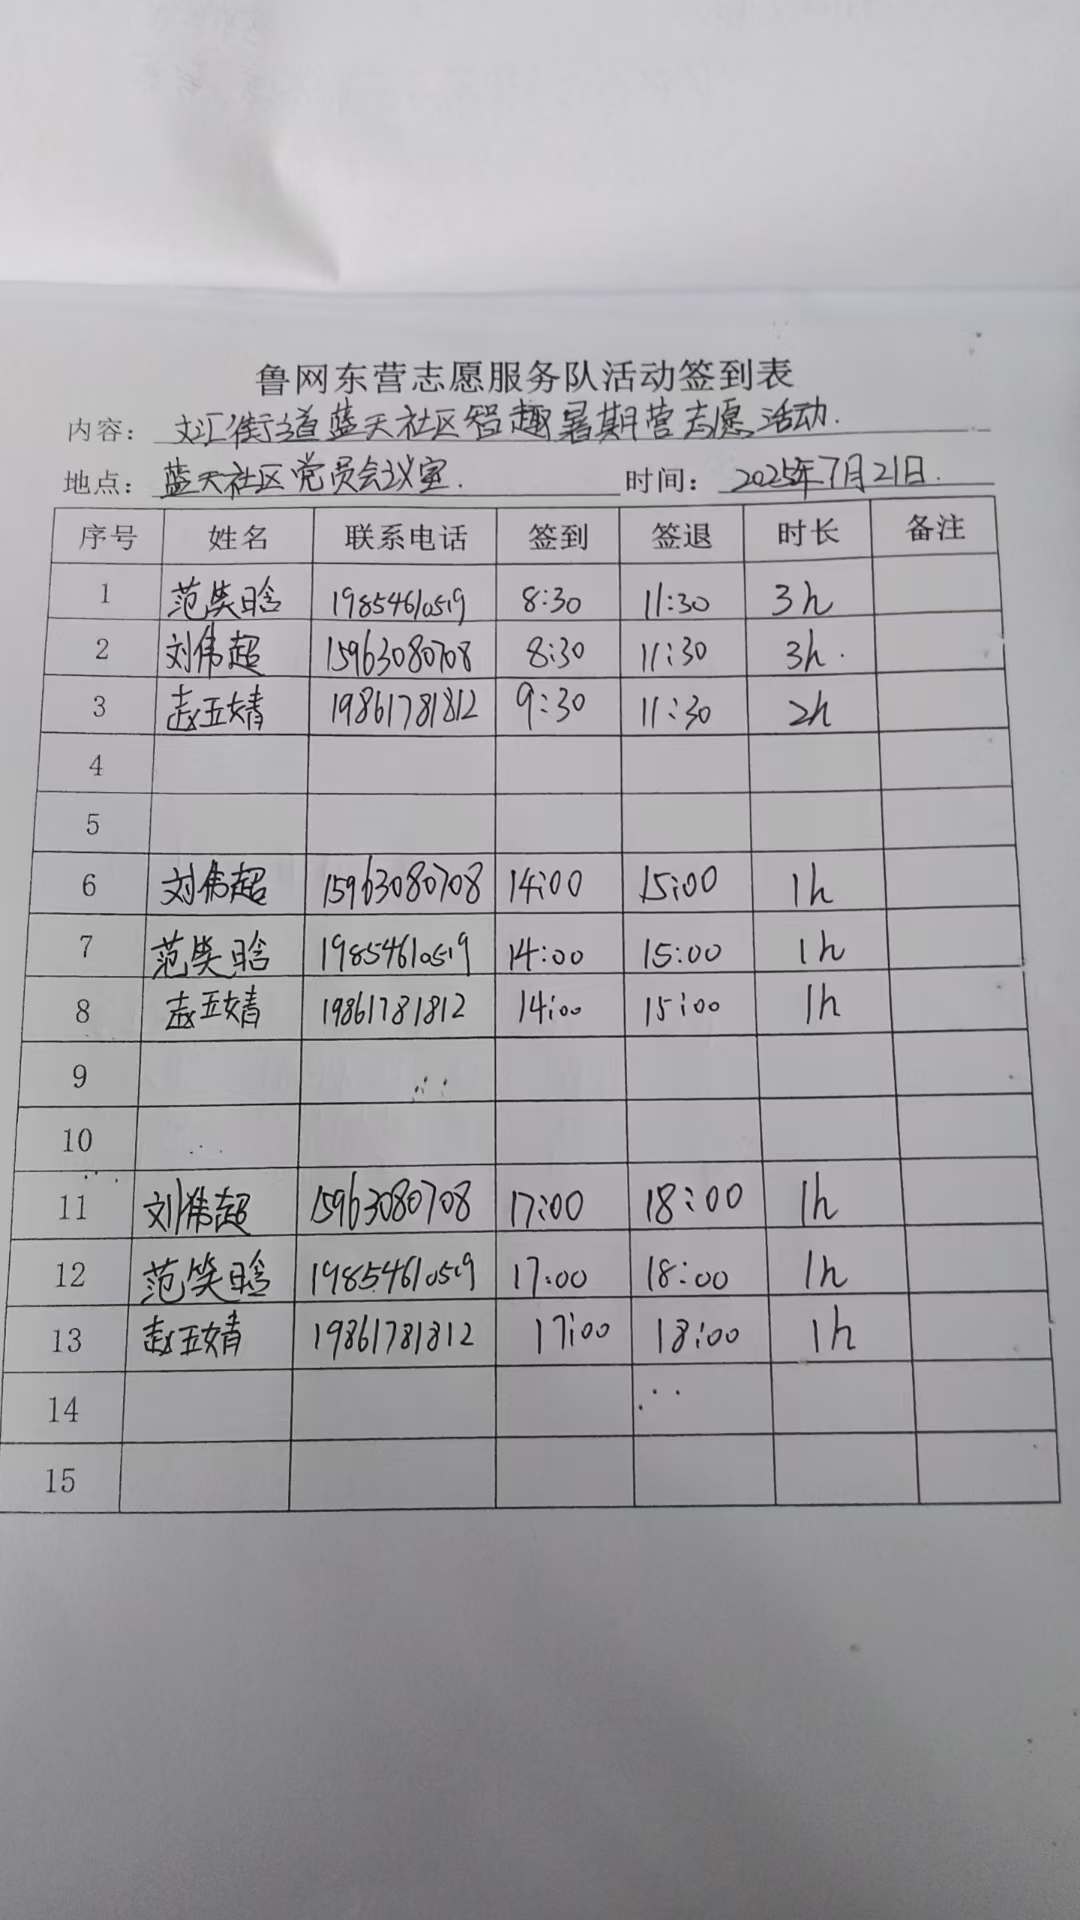 鲁网东营志愿服务队活动签到表
内容: 文汇街道蓝天社区智趣暑期营志愿活动.
地点: 蓝天社区党员会议室. 时间: 2025年7月21日.
序号 姓名 联系电话 签到 签退 时长 备注
1 范笑晗 19854610519 8:30 11:30 3h
2 刘伟超 15963080708 8:30 11:30 3h.
3 赵玉婧 19861781812 9:30 11:30 2h
4
5
6 刘伟超 15963080708 14:00 15:00 1h
7 范笑晗 19854610519 14:00 15:00 1h
8 赵玉婧 19861781812 14:00 15:00 1h
9
10
11 刘伟超 15963080708 17:00 18:00 1h
12 范笑晗 19854610519 17:00 18:00 1h
13 赵玉婧 19861781812 17:00 18:00 1h
14
15